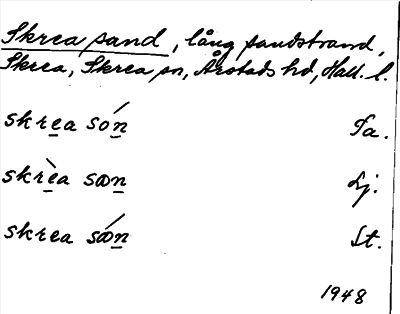 Skrea sand, lång sandstrand,
Skrea, Skrea sn, Årstads hd, Hall. l.
skrea són Fa.
skrèa sɷn Lj.
skrea sɷ́n St.
1948